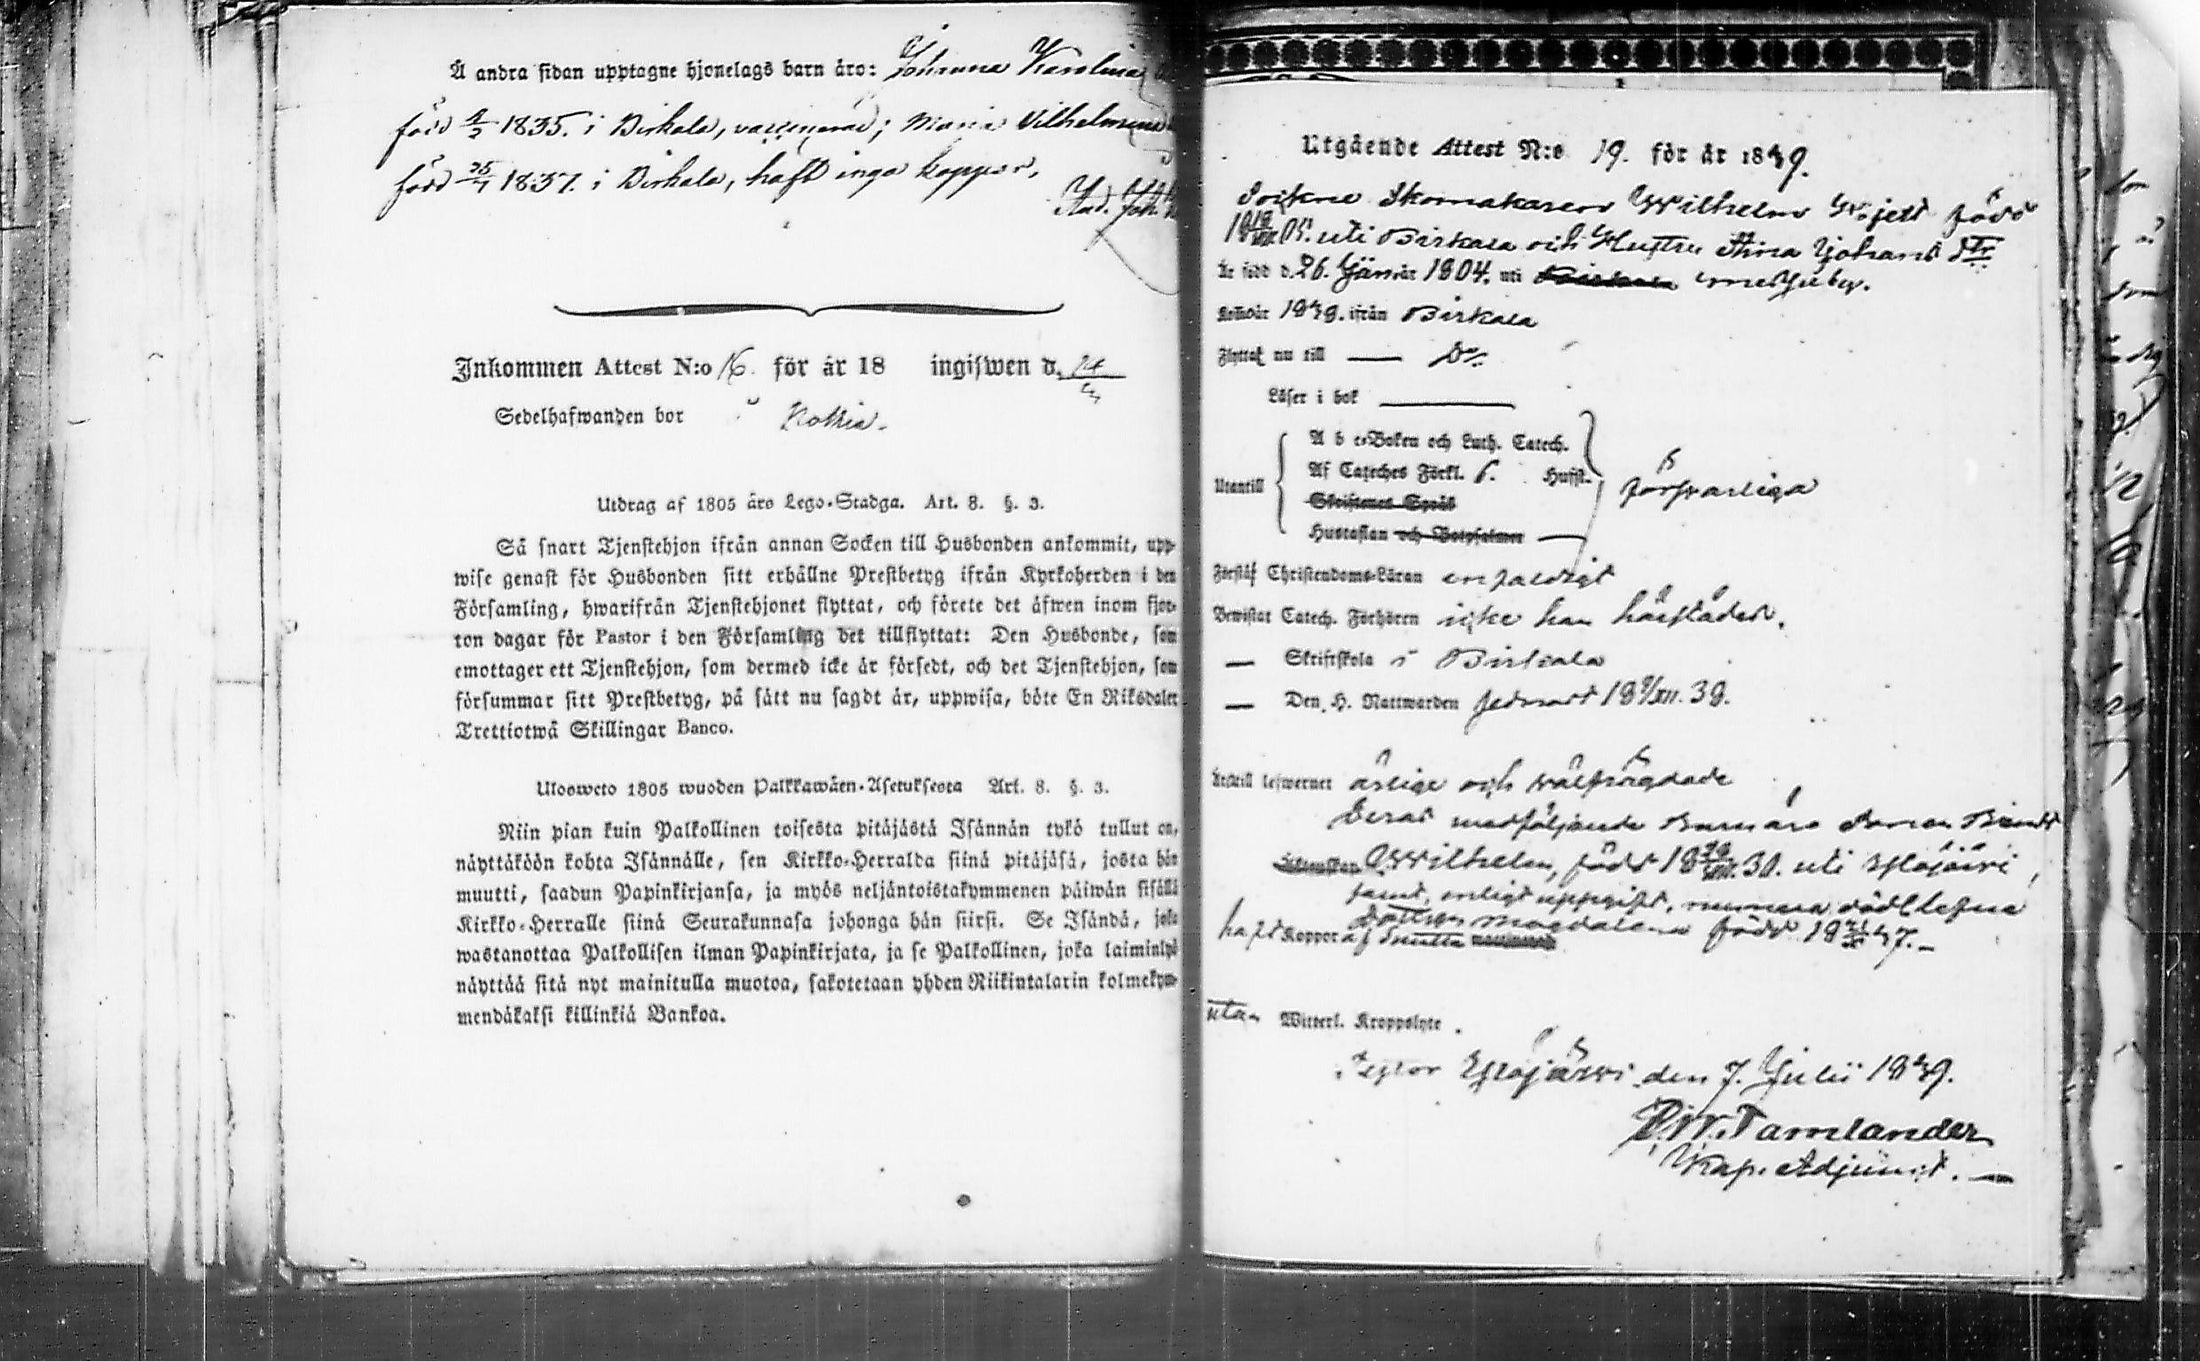 Å andra sidan upptagne hjonelags barn äro: Johanna Karolina
född 2/2 1835. i Birkala, vaccinerad; Maria Vilhelmina
född 25/7 1837. i Birkala, haft inga koppor,
And. Joh.
Inkommen Attest N:o 16. för år 18 ingifwen d. 24
Sedelhafwanden bor i Nokia.
Utdrag af 1805 års Lego-Stadga. Art. 8. §. 3.
Så snart Tjenstehjon ifrån annan Socken till Husbonden ankommit, upp-
wise genast för Husbonden sitt erhållne Prestbetyg ifrån Kyrkoherden i den
Församling, hwarifrån Tjenstehjonet flyttat, och förete det äfwen inom fjor-
ton dagar för Pastor i den Församling det tillflyttat: Den Husbonde, som
emottager ett Tjenstehjon, som dermed icke är försedt, och det Tjenstehjon, som
försummar sitt Prestbetyg, på sätt nu sagdt är, uppwisa, böte En Riksdaler
Trettiotwå Skillingar Banco.
Ulosweto 1805 wuoden Palkkawäen-Asetuksesta Art. 8. §. 3.
Niin pian kuin Palkollinen toisesta pitäjästä Isännän tykö tullut on,
näyttäköön kohta Isännälle, sen Kirkko-Herralda siinä pitäjäsä, josta hän
muutti, saadun Papinkirjansa, ja myös neljäntoistakymmenen päiwän sisällä
Kirkko-Herralle siinä Seurakunnasa johonga hän siirsi. Se Isändä, joka
wastanottaa Palkollisen ilman Papinkirjata, ja se Palkollinen, joka laiminlyö
näyttää sitä nyt mainitulla muotoa, sakotetaan yhden Riikintalarin kolmekym-
mendäkaksi killinkiä Bankoa.
Utgående Attest N:o 19. för år 1849.
Sockne Skomakaren Wilhelm född
05. uti Birkala och Hustru Stina Johans dtr
är född d. 26. Januar 1804. uti Birkala
Kom år 1849. ifrån Birkala
Flyttat nu till Do.
Läser i bok
A b c-Boken och Luth. Catech.
Utantill Af Cateches Förkl. 6. Hufst. försvarliga
Skriftenes Språk
Hustaflan och Botpsalmer
Förstår Christendoms-Läran enfaldigt
Bewistat Catech. Förhören icke han härstädes.
Skriftskola i Birkala
Den H. Nattwarden sednast 39.
lefwernet ärlige och välfrägdade
Deras medföljande Barn äro Sonen
Wilhelm, född 30. uti Ylöjärvi,
samt, enligt uppgift,
dottren Magdalena född 47.
haft Koppor af
utan Witterl. Kroppslyte.
Ylöjärvi den 7. Julii 1849.
Tamlander
Kap. Adjunct.